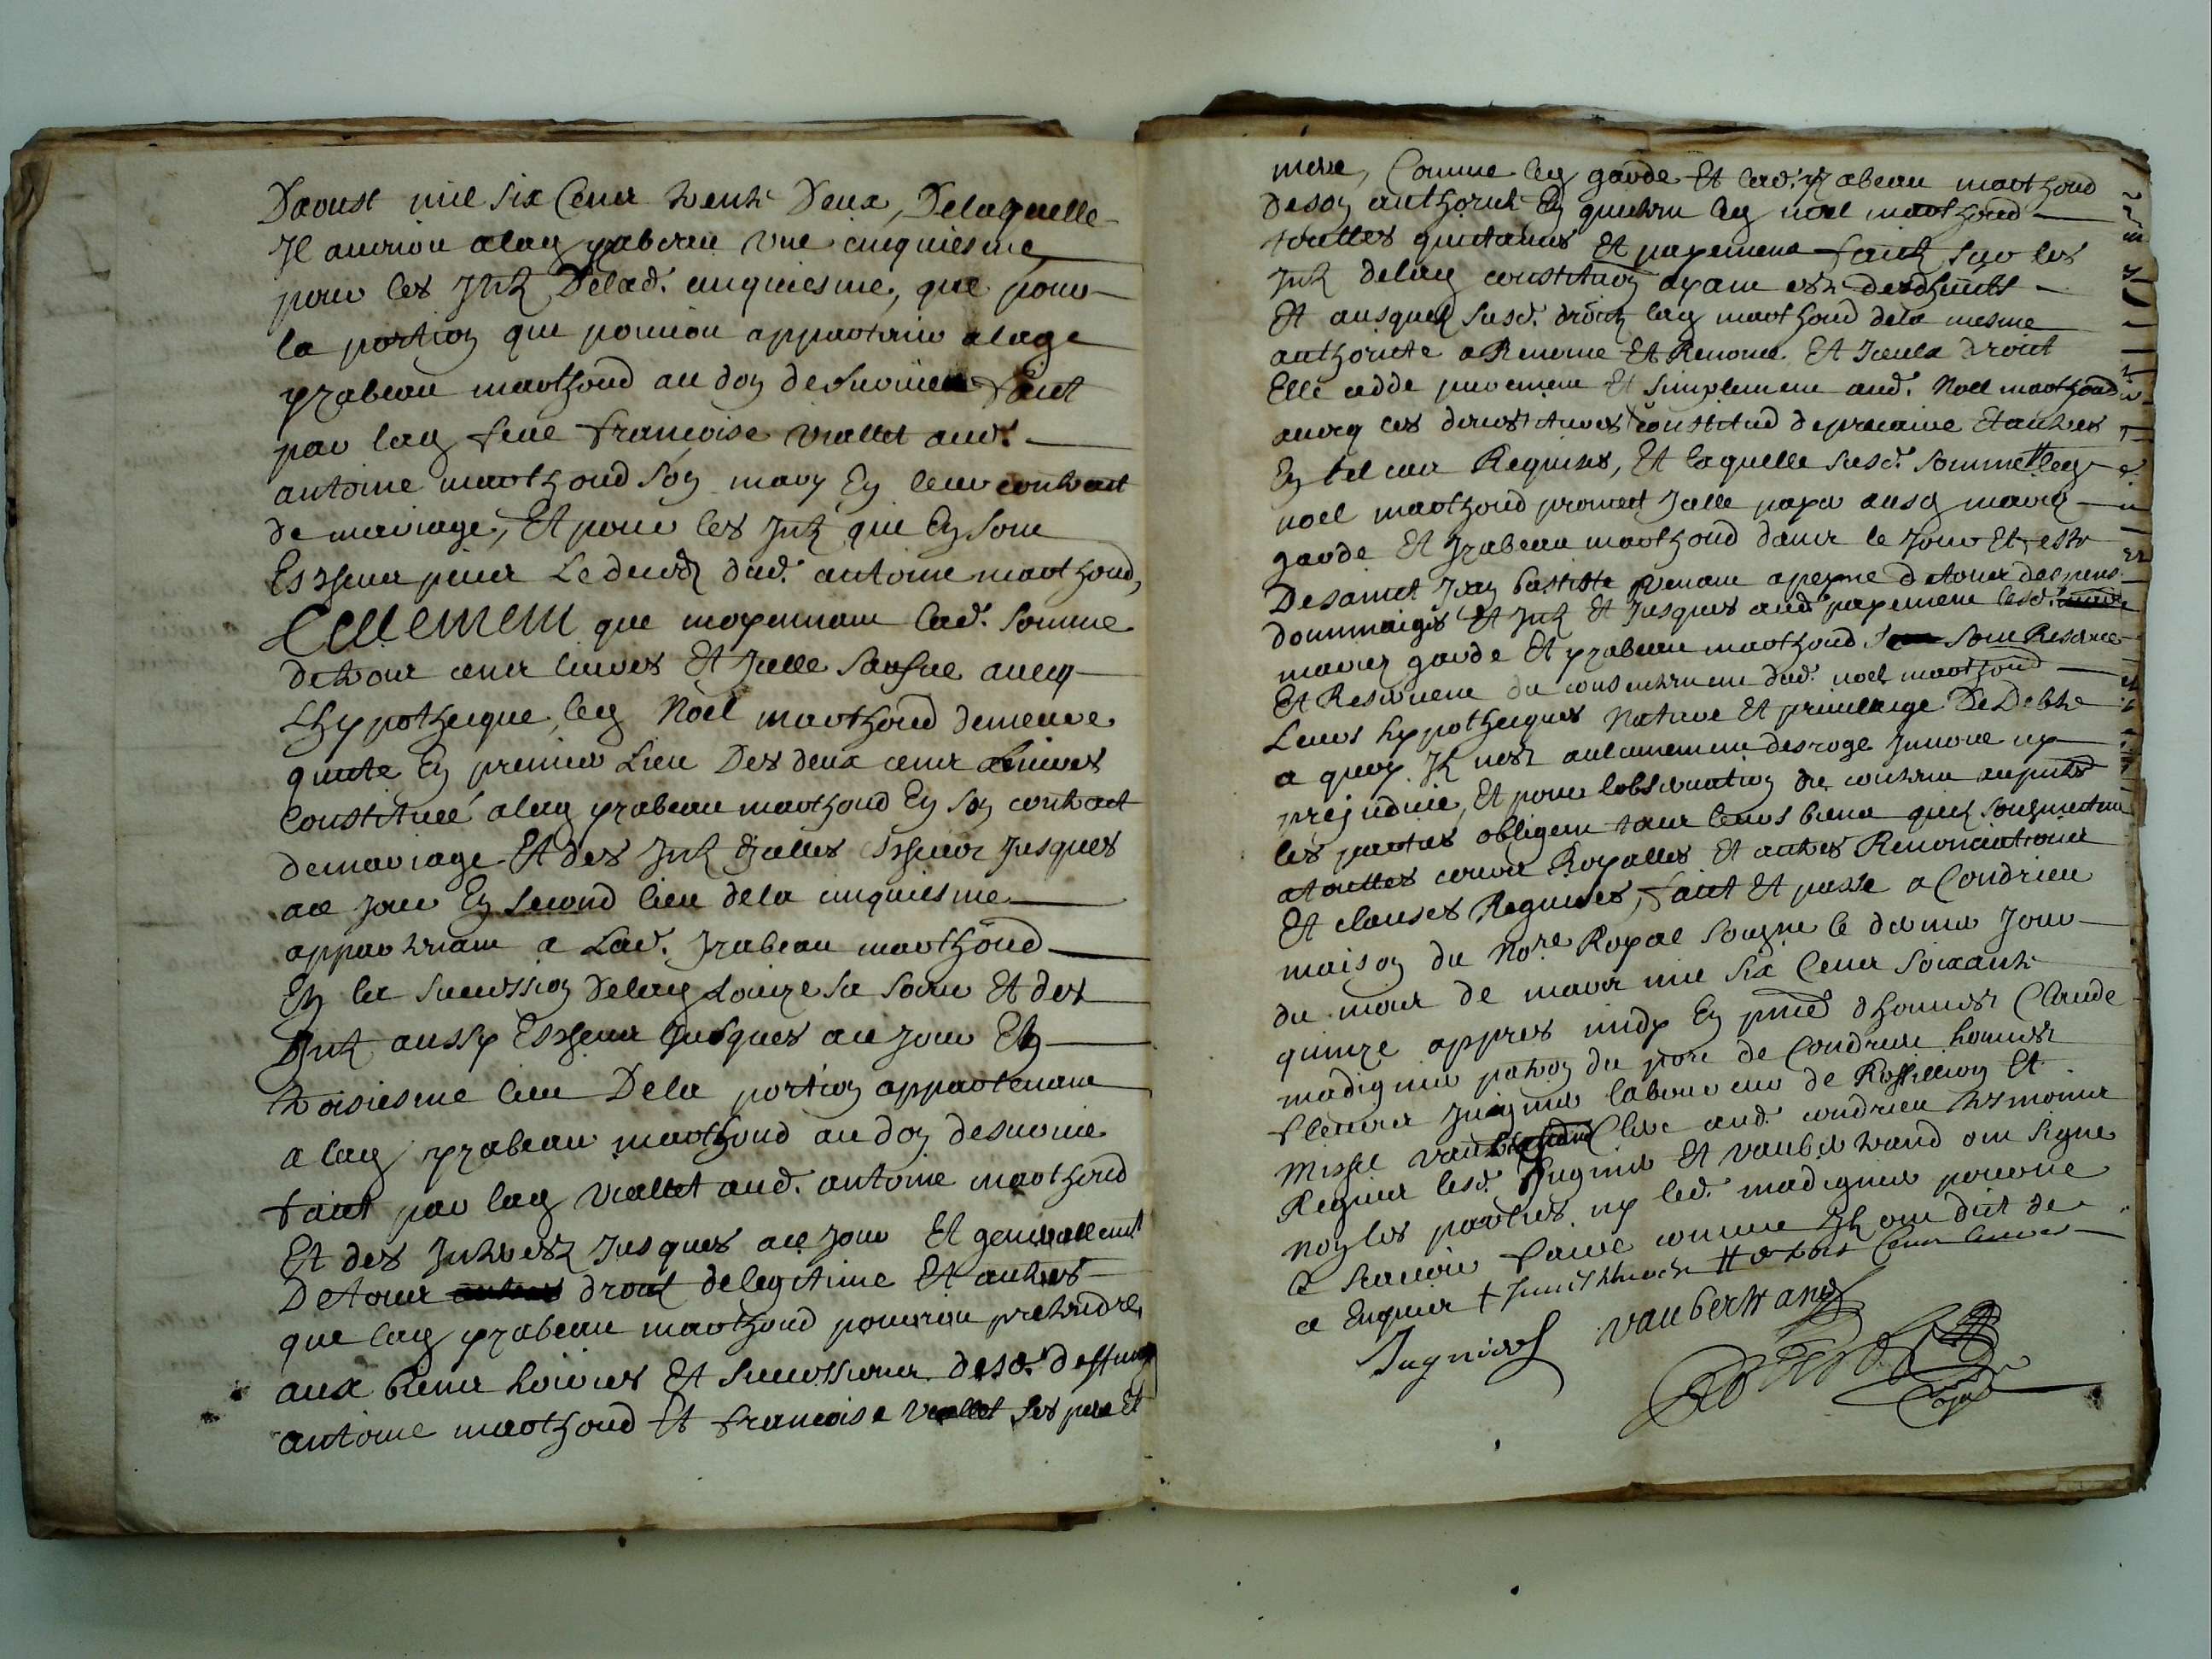 Daoust mil six Cens trente Deux, Delaquelle
Il auvriou alad yzabeau une cinquiesme
pour les Intz Delad. cinquiesme, que pour
la portion que pouriou appartenir alad
yzabeau marthoud au don de survie faict
par lad feue francoise viallet aud.
antoine marthoud son mary En leur contract
de mariage, Et pour les Intz que En sont
Escheus puis Le deces dud. antoine marthoud,
Tellement que moyennant lad. somme
de trois cens livres Et Icelle sauf ne avecq
Lhypothecque, led Noel marthoud demeure
quitte En premier Lieu Des deux cens livres
Constitueé alad yzabeau marthoud En son contract
de mariage Et des Intz dicelles Escheus Jusques
a ce Jour En second lieu de la cinquiesme
appartenant a Lad. Izabeau marthoud
En la succession Delad Louize sa soeur Et des
Intz aussy Escheus Jusques a ce Jour En
troisiesme lieu De la portion appartenant
a lad yzabeau marthoud au don de survie
faict par lad viallet aud. antoine marthoud
Et des Interestz Jusques a ce Jour Et generallement
De tous droict de legitime Et autres
que lad yzabeau marthoud pourriou pretendre
aux biens hoiries Et successions desd. deffunctz
antoine marthoud Et francoise viallet ses pere Et
mere, Comme led garde Et lad. yzabeau marthoud
De son authorité En quictent led noel marthoud
touttes quictances Et payemens faictz sur les
Intz delad constitution ayant esté desduicts
Et ausquels susd. droictz lad marthoud de la mesme
authorité a Renoncé Et Renonce Et Iceulx droict
Elle cedde purement Et simplement aud. Noel marthoud
avecq les devestitures constitud de precaire Et autres
En tel cas Requises, Et laquelle susd. somme # led
noel marthoud promect Icelle payer ausd mariez
garde Et Izabeau marthoud dans le Jour Et feste
De sainct Jean baptiste venant a peyne de tous despens
dommaiges Et Intz Et Jusques aud. payement lesd.
mariez garde Et yzabeau marthoud sont Reservé
Et Reservent du consentement dud. noel marthoud
Leurs hypothecques Nature Et privileige De Debte
a quoy Il nest aulcunement desrogé Innové ny
prejudicié, Et pour lobservation du contenu aux presentes
les parties obligent tous leurs biens quilz soubzmettent
a touttes cours Royalles Et autres Renonciations
Et clauses Requises, faict Et passé a Condrieu
maison du No.re Royal soubzné le dernier Jour
du mois de mars mil six Cens soixante
quinze appres midy En pnce dhonnest Claude
madignier patron du port de Condrieu honnest
fleury Jugnier laboureur de Roussillon Et
Michel vaubertrand Clerc aud. condrieu tesmoins
Requis lesd. Jugnier Et vaubertrand ont signé
Non les parties ny led. madignier pour ne
le scavoir faire comme Ilz ont dict de
ce Enquis # de trois Cens livres
Jugnier vaubertrand